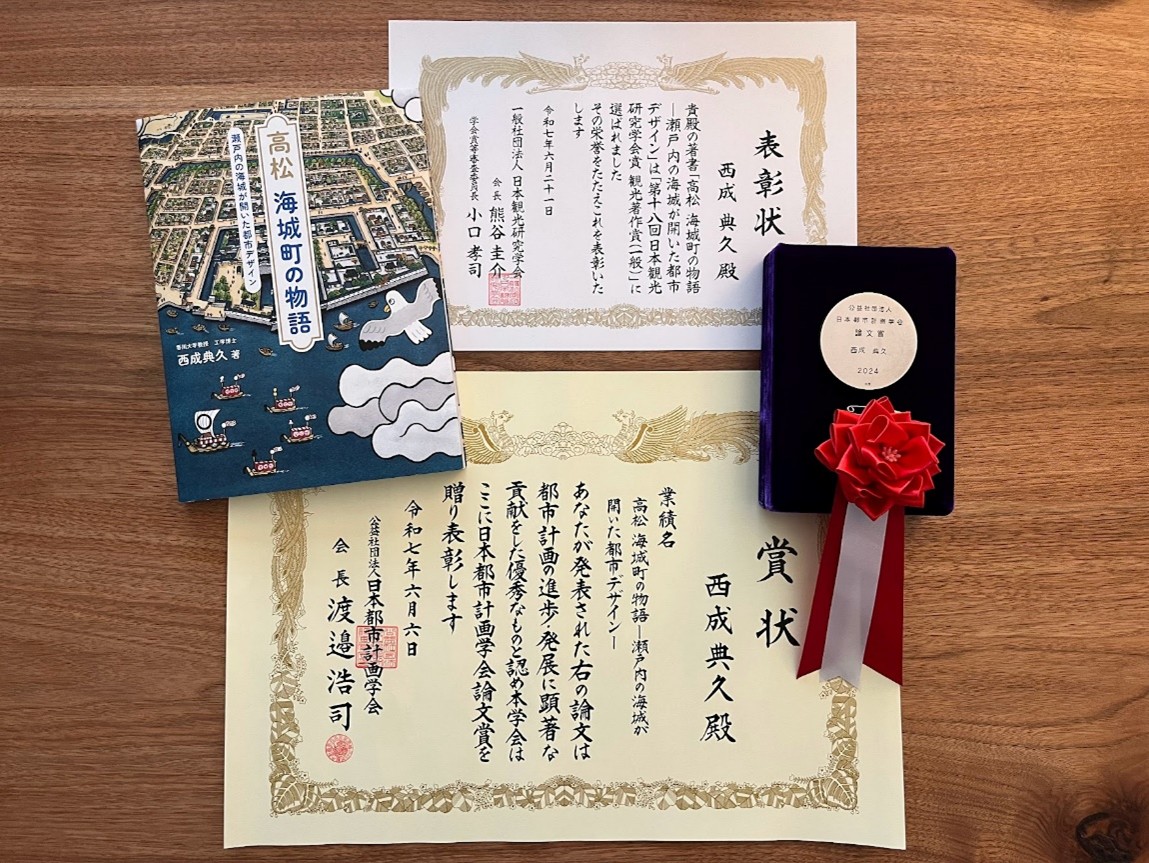 高松 海城町の物語
瀬戸内の海城が開いた都市デザイン
西成典久 著
表彰状
西成 典久 殿
貴殿の著書「高松 海城町の物語
―瀬戸内の海城が開いた都市
デザイン」は「第十八回日本観光
研究学会賞 観光著作賞(一般)」に
選ばれました
その栄誉をたたえこれを表彰いた
します
令和七年六月二十一日
一般社団法人 日本観光研究学会
会長 熊谷 圭介
学会賞等審査委員長 小口 孝司
公益社団法人
日本都市計画学会
論文賞
西成 典久
2024
賞状
西成 典久 殿
業績名
高松 海城町の物語―瀬戸内の海城が
開いた都市デザイン―
あなたが発表された右の論文は
都市計画の進歩・発展に顕著な
貢献をした優秀なものと認め本学会は
ここに日本都市計画学会論文賞を
贈り表彰します
令和七年六月六日
公益社団法人 日本都市計画学会
会長 渡邉 浩司